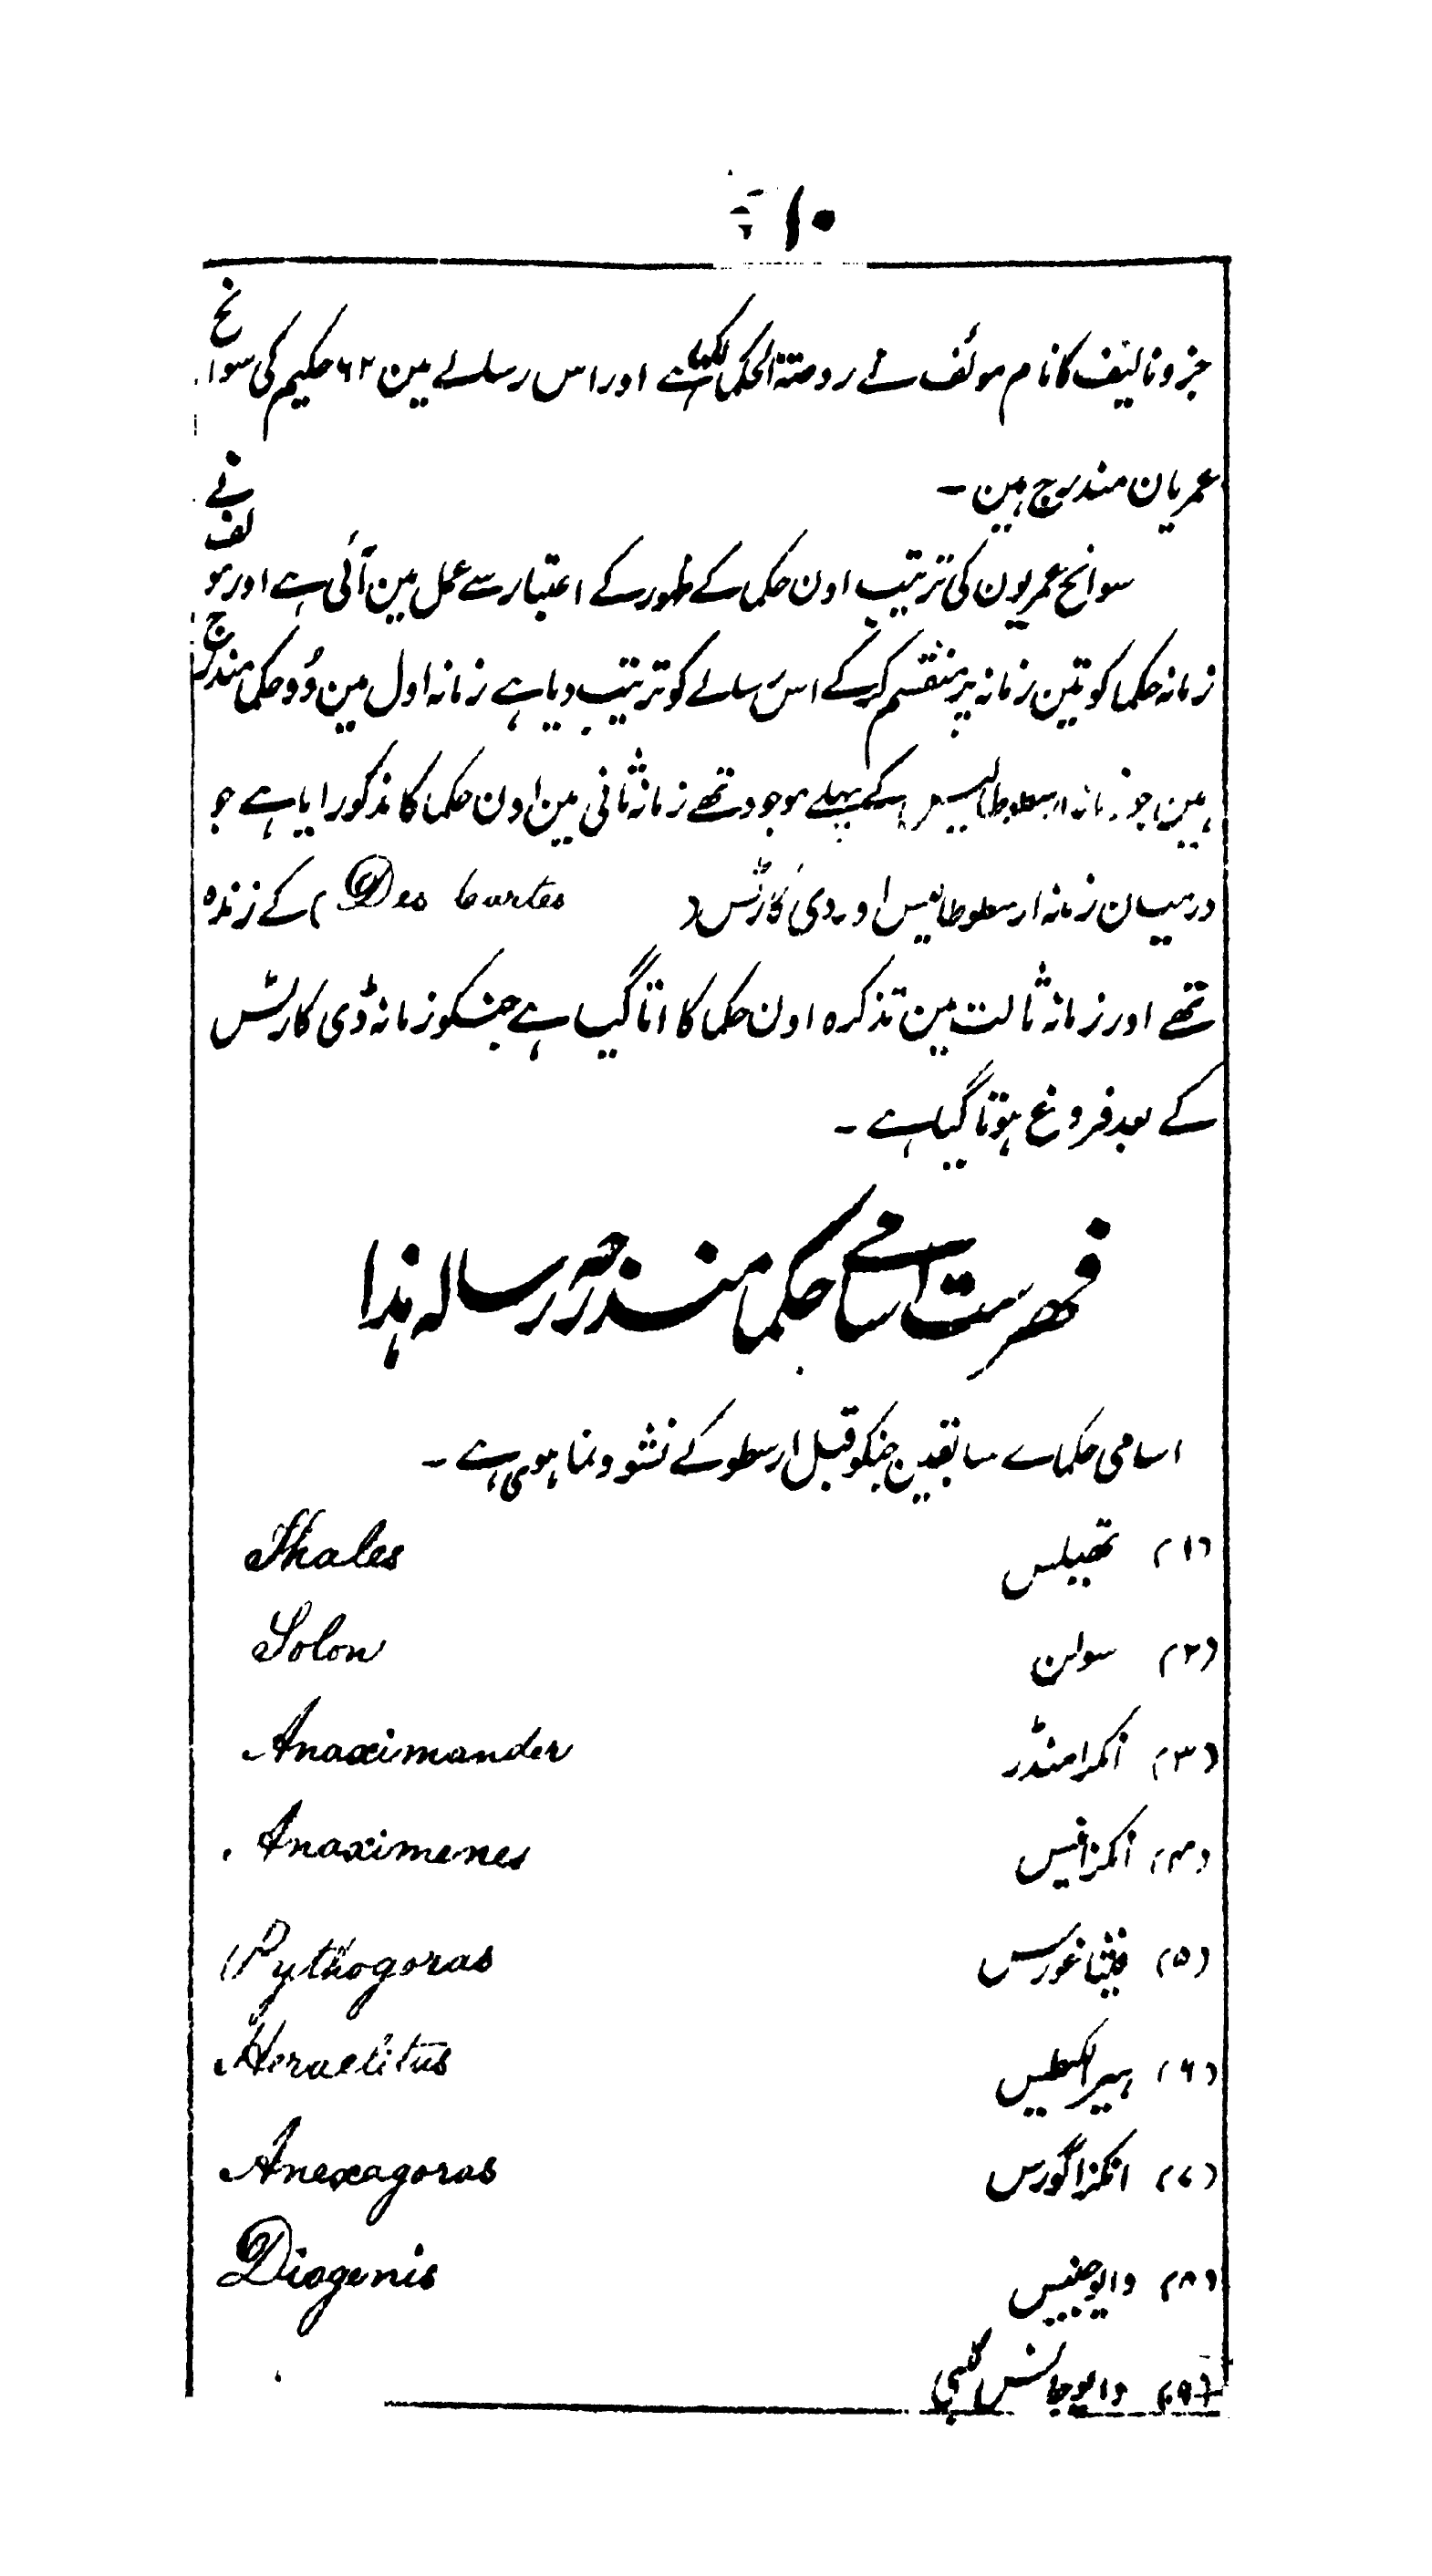 ۱۰
جزو تالیف کا نام مولف نے روضتہ الحکما رکھا ہے اور اس رسالے مین ۶۲ حکیم کی سوانح
عمریان مندرج ہین۔
سوانح عمریون کی ترتیب اون حکما کے ظہور کے اعتبار سے عمل مین آئی ہے اور مولف نے
زمانہ حکما کو تین زمانہ پر منقسم کر کے اس رسالے کو ترتیب دیا ہے زمانہ اول مین وُہ حکما مندرج
ہین جو زمانہ ارسطوطالیس کے پہلے موجود تھے زمانہ ثانی مین اون حکما کا مذکور ایا ہے جو
درمیان زمانہ ارسطوطالیس اور دی کارٹس (Des Cartes) کے زندہ
تھے اور زمانہ ثالث مین تذکرہ اون حکما کا اتا گیا ہے جنکو زمانہ ڈی کارٹس
کے بعد فروغ ہوتا گیا ہے۔
فہرست اسامے حکما مندرجہ رسالہ ہذا
اسامی حکماے سابقین جنکو قبل ارسطو کے نشو و نما ہوی ہے۔
(۱) تھیلس Thales
(۲) سولن Solon
(۳) انکزامنڈر Anaximander
(۴) انکزامنیس Anaximenes
(۵) فیثاغورس Pythogoras
(۶) ہیراکلطیس Heraclitus
(۷) انکزاگورس Anexagoras
(۸) دایوجنیس Diogenis
(۹) دایوجانس کلبی